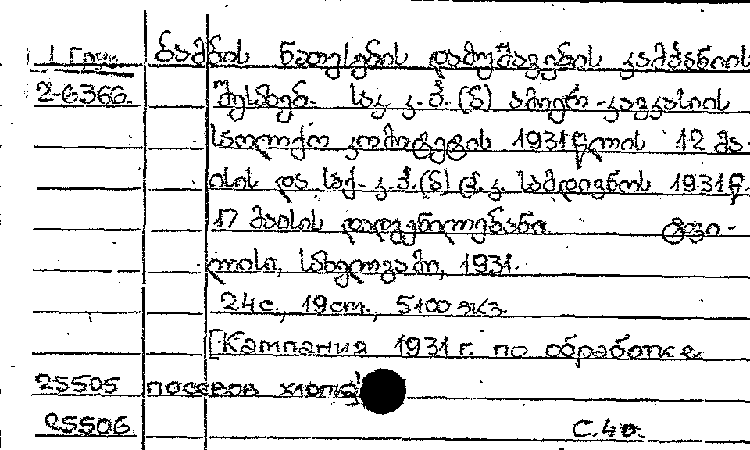 ბამბის ნათესების დამუშავების კამპანიის
2-6366. შესახებ. საკ. კ. პ. (ბ) ამიერ-კავკასიის
საოლქო კომიტეტის 1931 წლის 12 მა-
ისის და საქ. კ. პ. (ბ) ც. კ. სამდივნოს 1931 წ.
17 მაისის დადგენილებანი. ტფი-
ლისი, სახელგამი, 1931.
24 с., 19 cm., 5100 экз.
[Кампания 1931 г. по обработке
25505 посевов хлопка]
25506 С.4о.